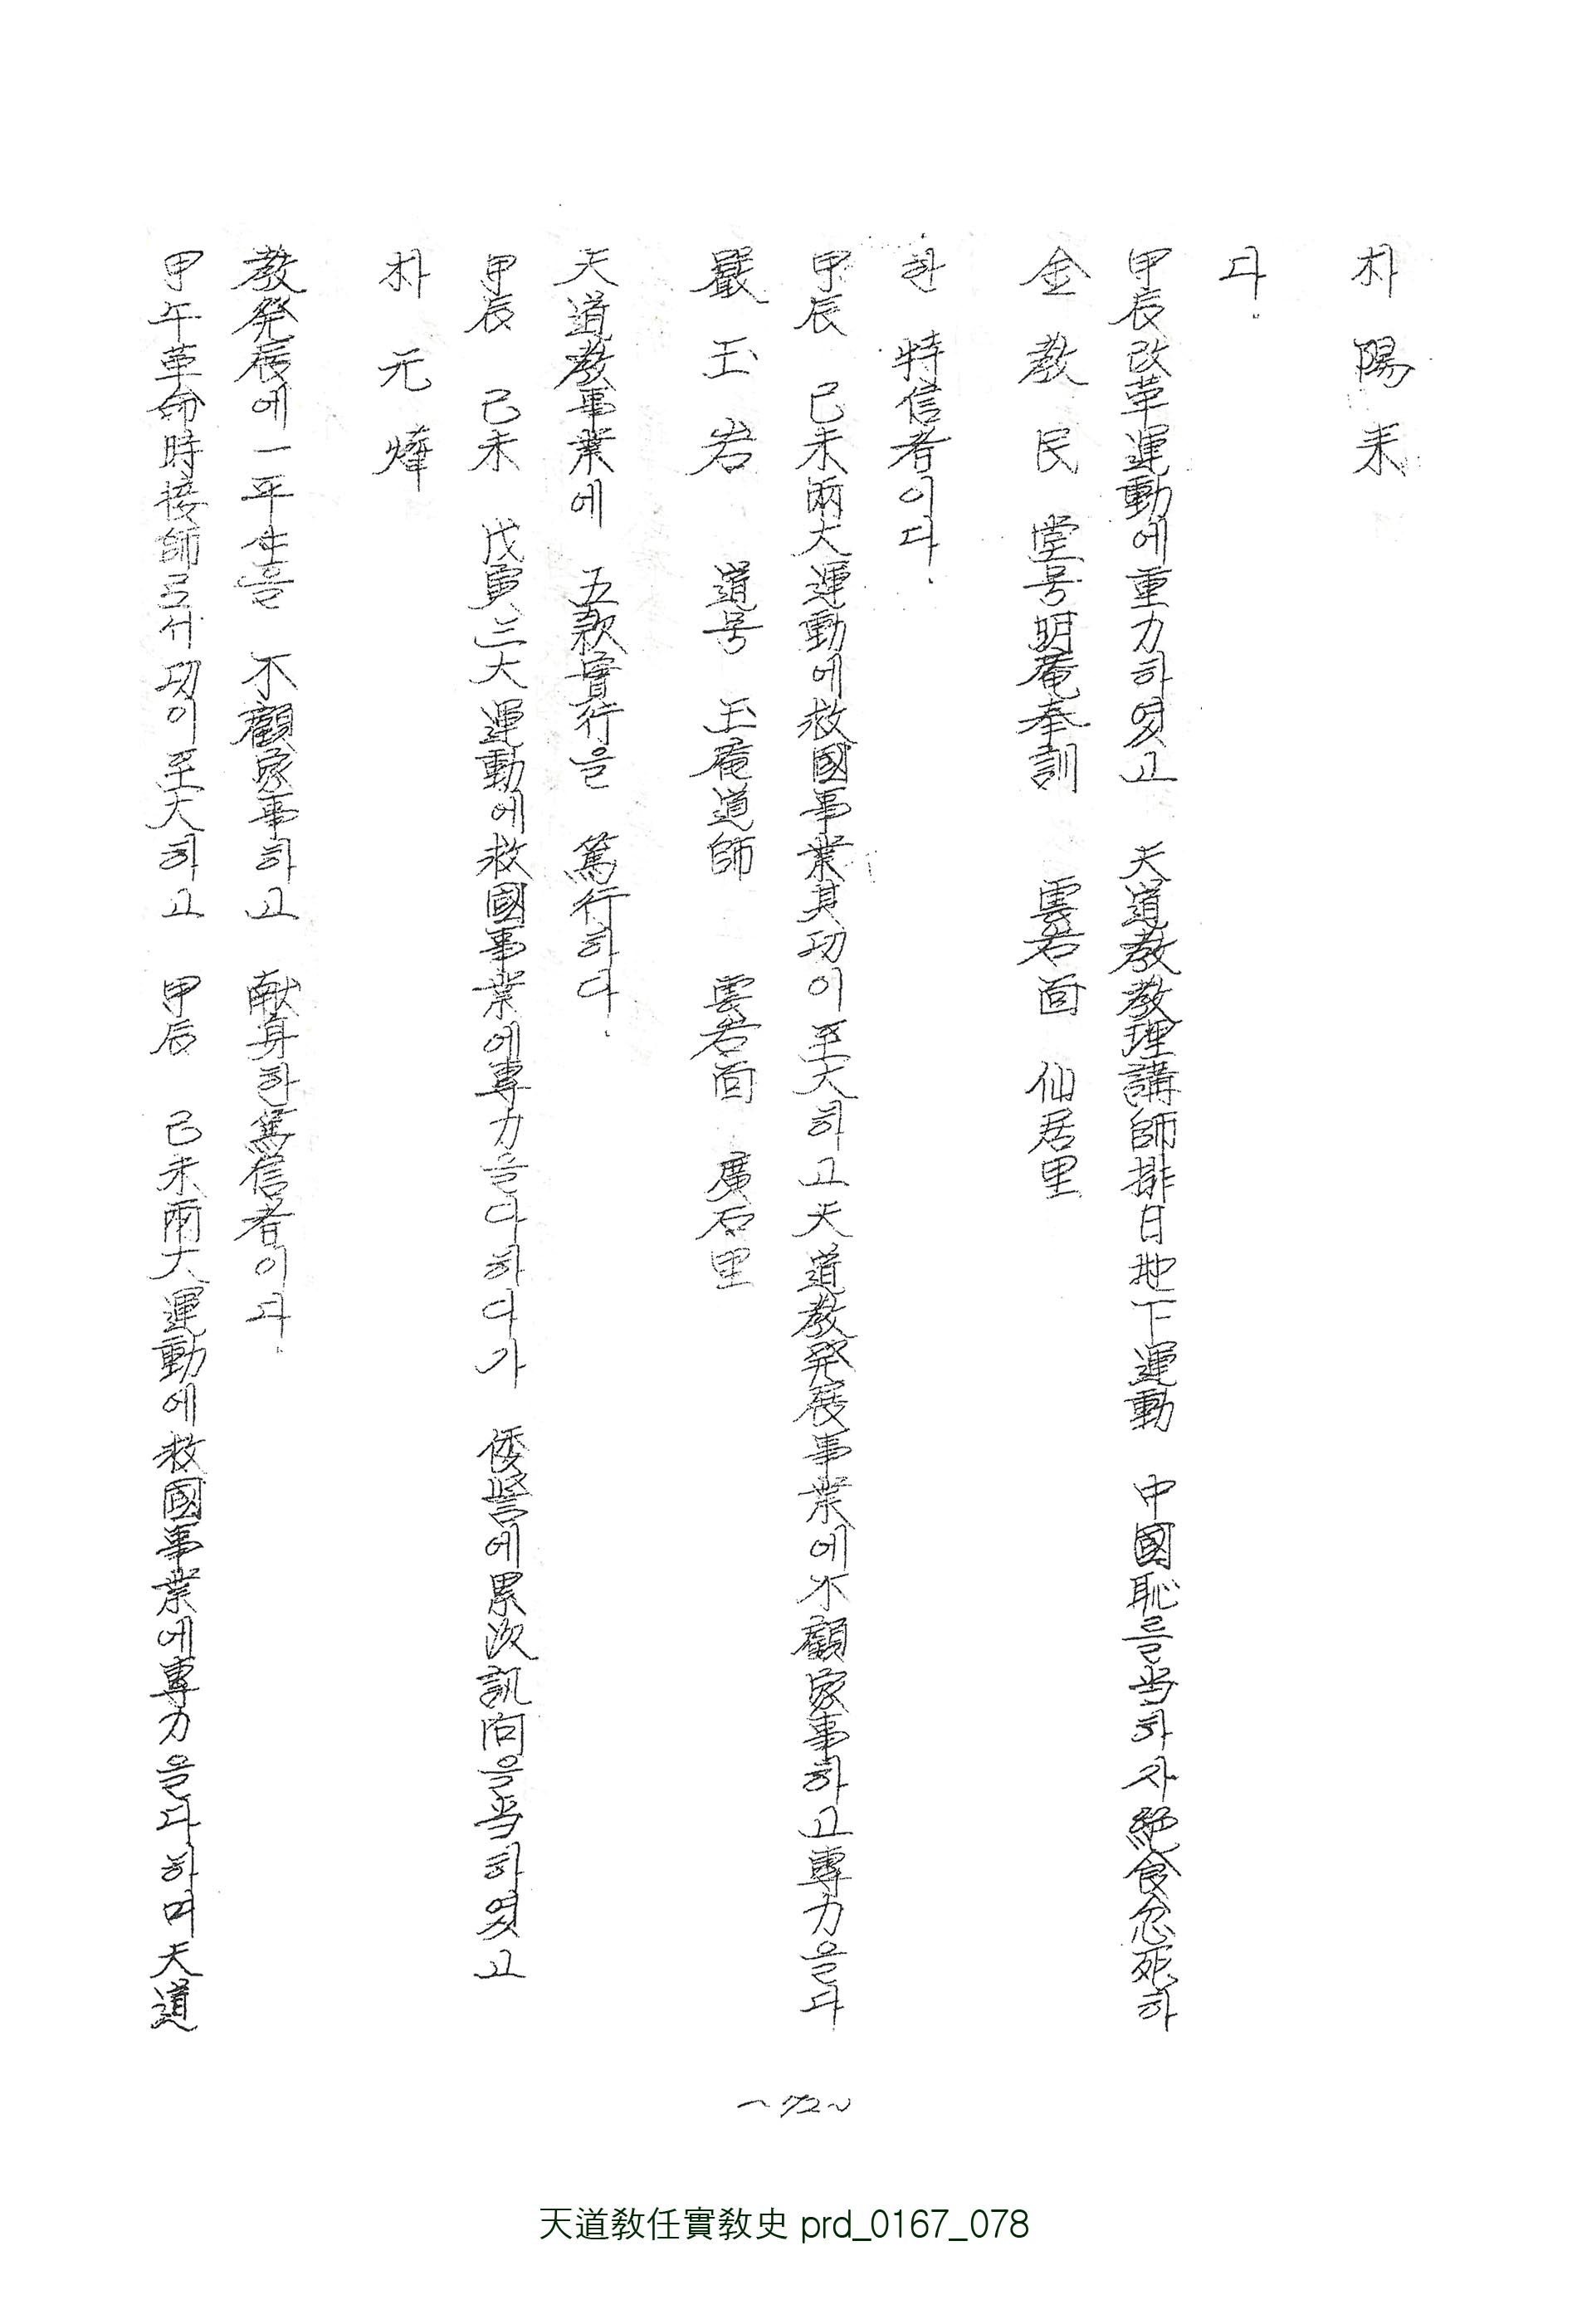 甲午革命時接師로서功이至大하고 甲辰 己未兩大運動에救國事業에專力을다하며天道
教発展에一平生을 不顧家事하고 献身한篤信者이다.
朴元燁
甲辰 己未 戊寅三大運動에救國事業에專力을다하다가 倭警에累次訊问을当하엿고
天道教事業에 五款實行을 篤行하다.
嚴玉岩 道号 玉庵道師 雲岩面 廣石里
甲辰 己未兩大運動에救國事業其功이至大하고天道教発展事業에不顧家事하고專力을다
한 特信者이다.
金教民 堂号明菴奉訓 雲岩面 仙居里
甲辰改革運動에重力하엿고 天道教教理講師排日地下運動 中國恥를当하자絶食忽死하
다.
朴陽來
~72~
天道敎任實敎史 prd_0167_078